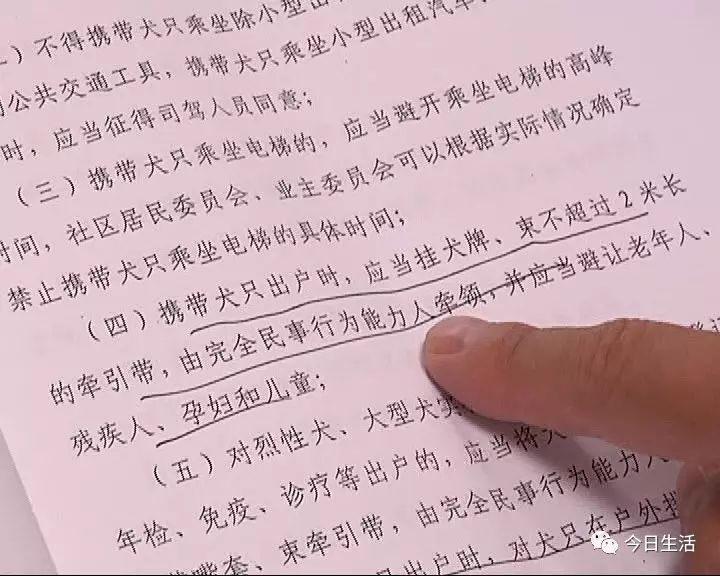 ）不得携带犬只乘坐除小型出
公共交通工具，携带犬只乘坐小型出租汽车
时，应当征得司驾人员同意；
（三）携带犬只乘坐电梯的，应当避开乘坐电梯的高峰
时间，社区居民委员会、业主委员会可以根据实际情况确定
禁止携带犬只乘坐电梯的具体时间；
（四）携带犬只出户时，应当挂犬牌、束不超过2米长
的牵引带，由完全民事行为能力人牵领，并应当避让老年人、
残疾人、孕妇和儿童；
（五）对烈性犬、大型犬实
年检、免疫、诊疗等出户的，应当将犬
嘴套、束牵引带，由完全民事行为能力人
出户时，对犬只在户外排
今日生活